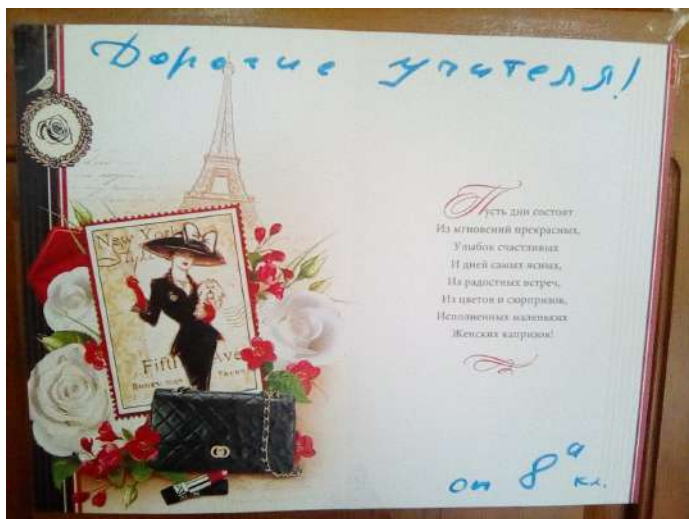 Дорогие учителя!
New York
Style
Fifth Ave
Пусть дни состоят
Из мгновений прекрасных,
Улыбок счастливых
И дней самых ясных,
Из радостных встреч,
Из цветов и сюрпризов,
Исполненных маленьких
Женских капризов!
от 8а кл.